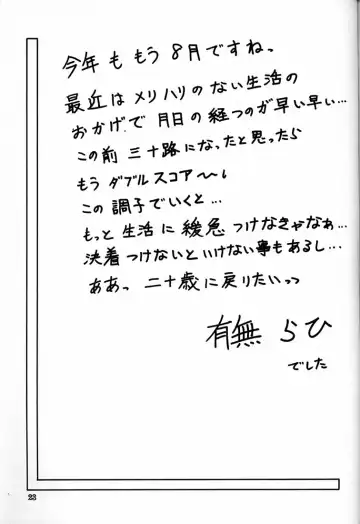 今年ももう8月ですね。
最近はメリハリのない生活の
おかげで月日の経つのが早い早い…
この前三十路になったと思ったら
もうダブルスコア〜〜。
この調子でいくと…
もっと生活に緩急つけなきゃなぁ…
決着つけないといけない事もあるし…
ああっ二十歳に戻りたいっっ
有無らひ
でした
23